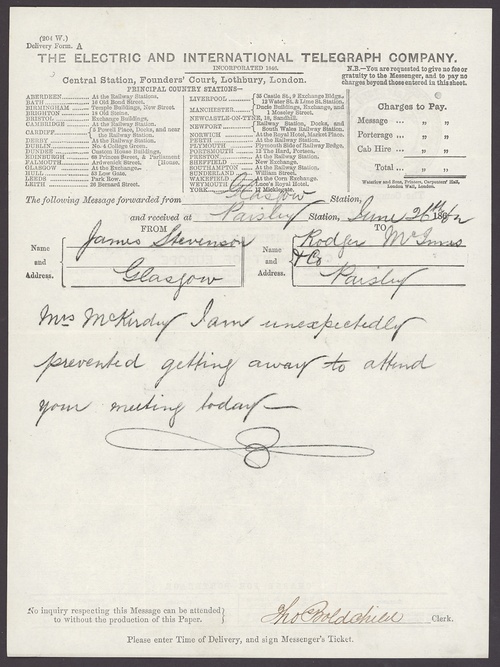 (204 W.)
Delivery Form. A
THE ELECTRIC AND INTERNATIONAL TELEGRAPH COMPANY.
INCORPORATED 1846.
Central Station, Founders' Court, Lothbury, London.
PRINCIPAL COUNTRY STATIONS—
N.B.—You are requested to give no fee or
gratuity to the Messenger, and to pay no
charges beyond those entered in this sheet.
ABERDEEN At the Railway Stations.
BATH 19 Old Bond Street.
BIRMINGHAM Temple Buildings, New Street.
BRIGHTON 19 Old Steine.
BRISTOL Exchange Buildings,
CAMBRIDGE At the Railway Station.
CARDIFF 5 Powell Place, Docks, and near
the Railway Station.
DERBY At the Railway Station.
DUBLIN No. 4 College Green.
DUNDEE Custom House Buildings,
EDINBURGH 68 Princes Street, & Parliament
[House.
FALMOUTH Arwenack Street,
GLASGOW At the Exchange.
HULL 53 Low Gate.
LEEDS Park Row.
LEITH 26 Bernard Street.
LIVERPOOL 35 Castle St., 9 Exchange Bldgs.,
12 Water St. & Lime St. Station.
MANCHESTER Ducie Buildings, Exchange, and
1 Mosley Street.
NEWCASTLE-ON-TYNE, 16, Sandhill.
NEWPORT Railway Station, Docks, and
South Wales Railway Station.
NORWICH At the Royal Hotel, Market Place.
PERTH At the Railway Station.
PLYMOUTH Plymouth Side of Railway Bridge.
PORTSMOUTH 12 The Hard, Portsea.
PRESTON At the Railway Station.
SHEFFIELD New Exchange.
SOUTHAMPTON At the Railway Station.
SUNDERLAND William Street.
WAKEFIELD At the Corn Exchange.
WEYMOUTH Luce's Royal Hotel.
YORK 17 Micklegate.
Charges to Pay.
Message ... " "
Porterage ... " "
Cab Hire ... " "
Total ... " "
Waterlow and Sons, Printers, Carpenters' Hall,
London Wall, London.
The following Message forwarded from Glasgow Station,
and received at Paisley Station, June 26th 1862
FROM TO
Name and Address. James Stevenson
Glasgow
Name and Address. Rodger McInnes
& Co
Paisley
Mrs McKirdy I am unexpectedly
prevented getting away to attend
your meeting today—
No inquiry respecting this Message can be attended
to without the production of this Paper.
Clerk.
Please enter Time of Delivery, and sign Messenger's Ticket.